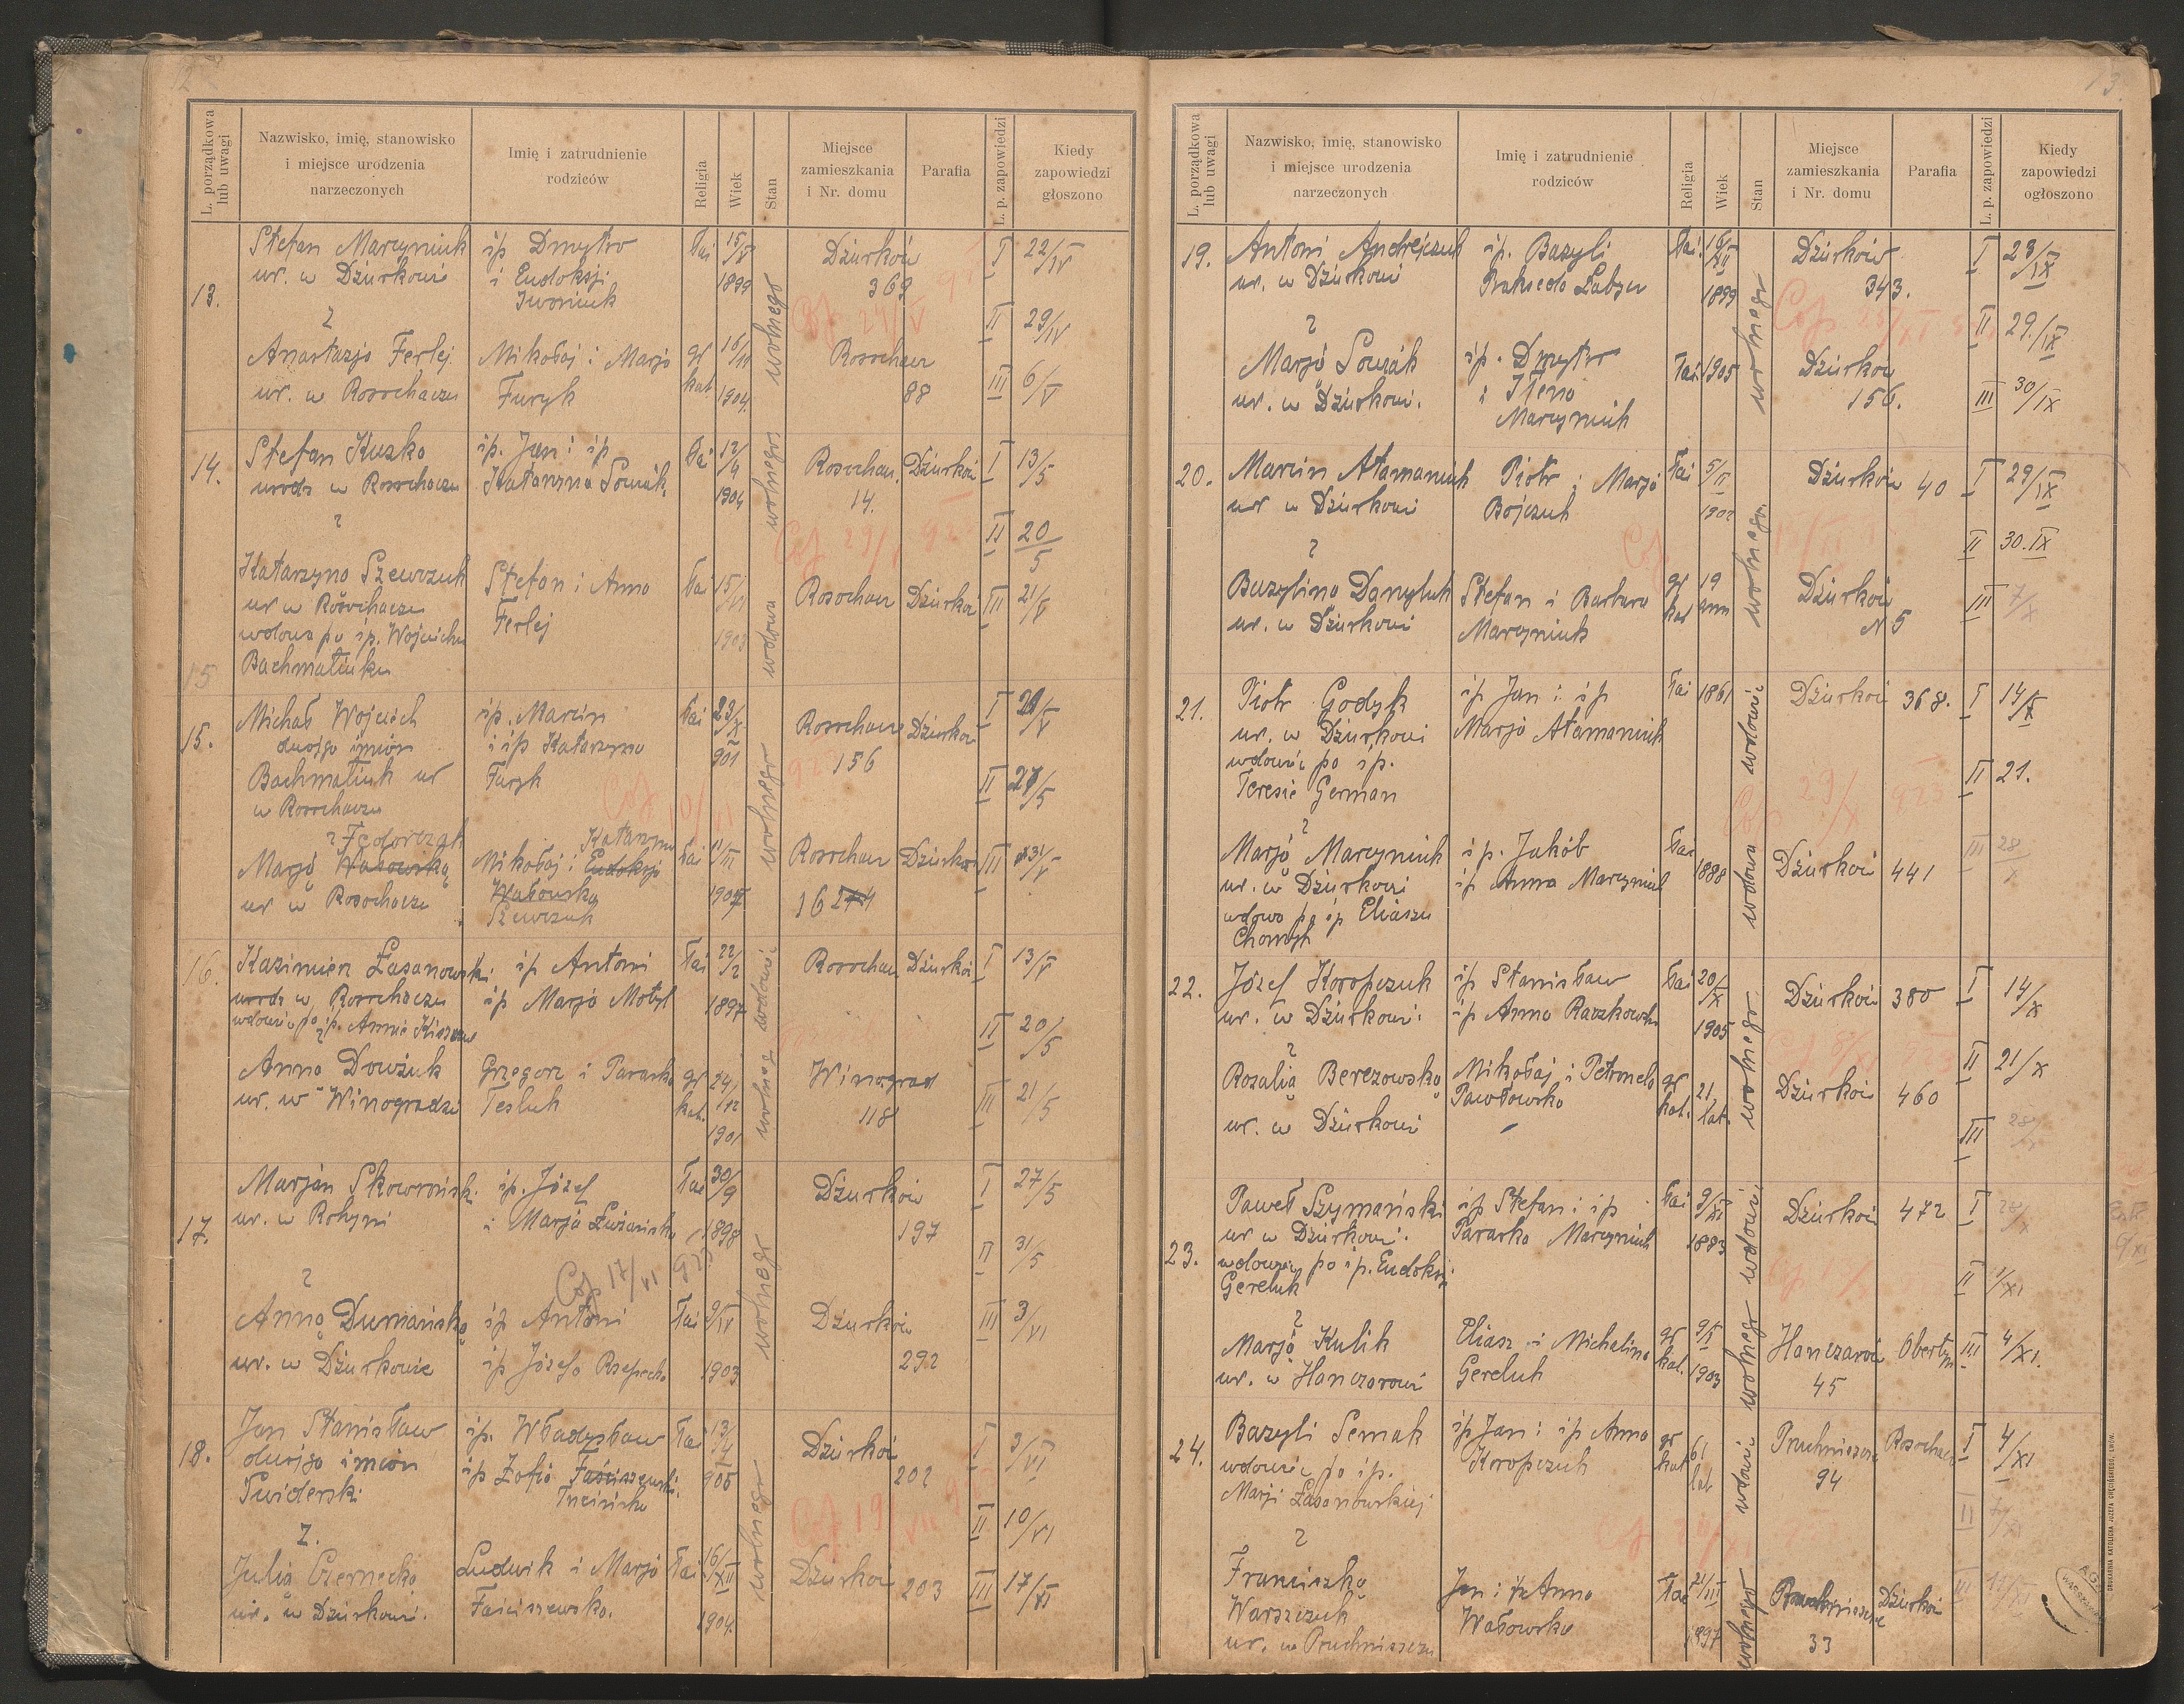 12
L. porządkowa lub uwagi
Nazwisko, imię, stanowisko i miejsce urodzenia narzeczonych
Imię i zatrudnienie rodziców
Religia
Wiek
Stan
Miejsce zamieszkania i Nr. domu
Parafia
L. p. zapowiedzi
Kiedy zapowiedzi głoszono
13.
Stefan Marcyniuk śp Dmytro łać 15/V Dżurków I 22/IV
ur. w Dżurkowi i Eudoksji 1899 369
Iwoniuk wolnego
z II 29/IV
Anastazją Ferlej Mikołaj i Marja gr 16/ Rosochacz
ur. w Rosochaczu Furyk kat. 1904. 88 III 6/V
14. Stefan Kuzko śp. Jan i śp łać 12/4 Rosochacz Dżurków I 13/5
urodz w Rosochaczu Katarzyna Sowiak 1904 14. wolnego
z II 20/5
Katarzyna Szewczuk Stefan i Anna łać 15/ Rosochacz Dżurków III 21/V
ur w Rosochaczu Ferlej 1903 wdowa
wdowa po śp. Wojciechu
Bachmatiuku
15
15. Michał Wojciech śp. Marcin łać 23/X Rosochacz Dżurków I 21/V
dwojga imion i śp Katarzyna 901 156
Bachmatiuk ur Furyk II 27/5
w Rosochaczu wolnego
z Fedorczak Katarzyna
Marją Wasowską Mikołaj i Eudoksja łać /III Rosochacz Dżurków III 31/V
ur w Rosochaczu Wasowska 1907 162
Szewczuk
16. Kazimierz Łasanowski śp Antoni łać 22/2 Rosochacz Dżurków I 13/V
urodz w Rosochaczu śp Marja Motyl 1897
wdowiec po śp. Annie II 20/5
Anna Dowżuk Grzegorz i Paraska gr 24/12 Winograd
ur. w Winogradzi Tesluk kat. 1901 118 III 21/5
17. Marjan Skowroński śp. Józef łać 30/9 Dżurków I 27/5
ur. w Rohyni i Marja 1898 197
z Cop 17/VI 923 II 31/5
wolnego
Anną Dumańską śp Antoni łać 9/IV Dżurków III 3/VI
ur. w Dżurkowie śp Józefa Rzepecka 1903 292
18. Jan Stanisław śp. Władysław łać 13/4 Dżurków I 3/VI
dwojga imion śp Zofia 905 202
Świderski
z. II 10/VI
wolnego
Julią Czernecką Ludwik i Marja łać 16/XII Dżurków 203 III 17/VI
ur. w Dżurkowi. Faściszewska. 1904.
13.
L. porządkowa lub uwagi
Nazwisko, imię, stanowisko i miejsce urodzenia narzeczonych
Imię i zatrudnienie rodziców
Religia
Wiek
Stan
Miejsce zamieszkania i Nr. domu
Parafia
L. p. zapowiedzi
Kiedy zapowiedzi ogłoszono
19. Antoni Andrejczuk śp. Bazyli łać. 16/XII Dżurków I 23/IX
ur. w Dżurkowi Prakseda 1899 343.
z II 29/IX
wolnego
Marją Sowiak śp. Dmytro łać 1905 Dżurków
ur. w Dżurkowi. i 156. III 30/IX
Marcyniuk
20. Marcin Atamaniuk Piotr i Marja łać 5/II Dżurków 40 I 29/IX
ur w Dżurkowi Bojczuk 1902
z II 30.IX
wolnego.
Bazyliną Danyluk Stefan i Barbara gr 19 Dżurków III 7/X
ur. w Dżurkowi Marcyniuk kat ann N 5
21. Piotr Godyk śp Jan i śp łać 1861 Dżurków 368. I 14/X
ur. w Dżurkowi Marja Atamaniuk
wdowiec po śp. wdowiec II 21.
Teresie German
z
Marją Marcyniuk śp. Jakób łać 1888 Dżurków 441 III 28/X
ur. w Dżurkowi śp Anna Marcyniuk wdowa
wdowa po śp Eliaszu
22. Józef Koropczuk śp Stanisław łać 20/X Dżurków 380 I 14/X
ur. w Dżurkowi. śp Anna Raszkowska 1905
z wolnego II 21/X
Rozalią Berezowską Mikołaj i Petronela gr 21 Dżurków 460
ur. w Dżurkowi Pawłowska kat. lat. III 28/X
23. Paweł Szymański śp Stefan i śp łać 9/XI Dżurków 472 I 28/X
ur w Dżurkowi. Paraska Marcyniuk 1883
wdowiec po śp. Eudoksji wdowiec II 1/XI
Gereluk
z
Marją Kulik Eliasz i Michalina gr 9/X Hanczarów Obertyn III 4/XI.
ur. w Hanczarowi Gereluk kat. 1903 45 wolnego
24. Bazyli Semak śp Jan i śp Anna gr 61 Pruchniszcze Rosochacz I 4/XI
wdowiec po śp. Koropczuk kat lat 94
Marji Łasanowskiej wdowiec II
z
Franciszką Jan i śp Anna łać 21/III Pruchniszcze Dżurków III
Warszczuk Wasowska 1897 33 wolnego
ur. w Pruchniszczu
DRUKARNIA KATOLICKA JÓZEFA CHĘCIŃSKIEGO, LWÓW.